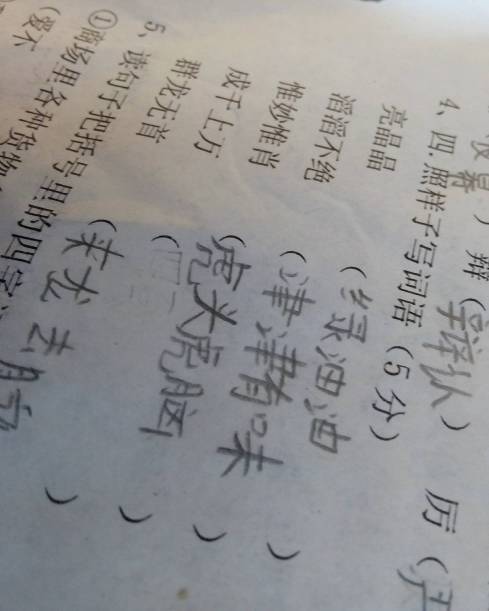 幕 ) 辩 (辩认) 厉 (严
4、四.照样子写词语 (5分)
亮晶晶 (绿油油 )
滔滔不绝 (津津有味 )
惟妙惟肖 (虎头虎脑 )
成千上万 ( )
群龙无首 (来龙去脉
5、读句子把括号里的四字
①商场里各种货物
(爱不